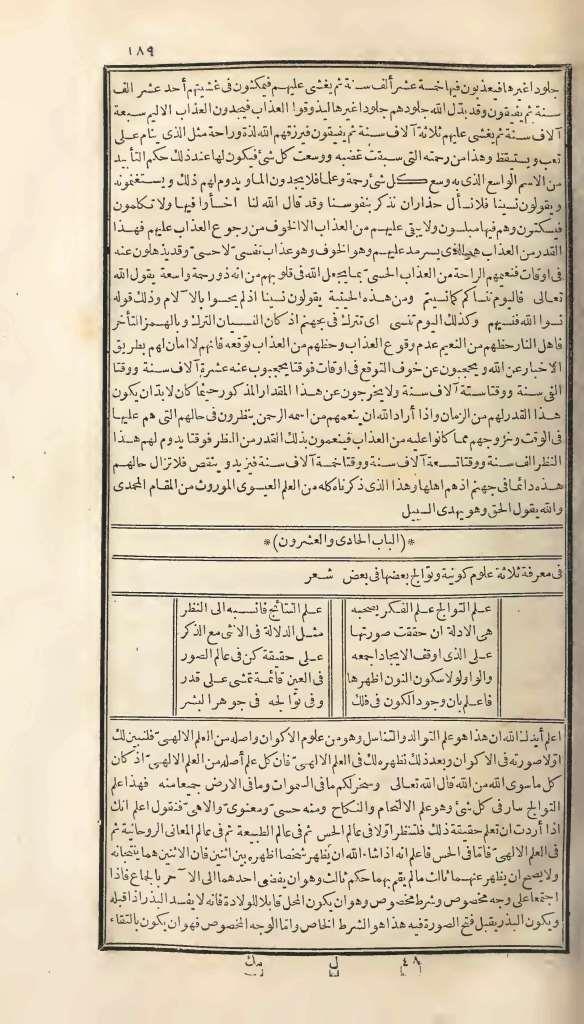 ١٨٩
جلودا غيرها فيعذبون فيها خمسة عشر ألف سنة ثم يغشى عليهم فيمكثون فى غشيتهم أحد عشر الف
سنة ثم يفيقون وقد بدّل الله جلودهم جلودا غيرها ليذوقوا العذاب فيجدون العذاب الاليم سبعة
آلاف سنة ثم يغشى عليهم ثلاثة آلاف سنة ثم يفيقون فيرزقهم الله لذة وراحة مثل الذى ينام على
تعب ويستيقظ وهذا من رحمته التى سبقت غضبه ووسعت كل شئ فيكون لها عند ذلك حكم التأبيد
من الاسم الواسع الذى به وسع كل شئ رحمة وعلما فلا يجدون ألما ويدوم لهم ذلك ويستغنمونه
ويقولون نسينا فلا نسأل حذارا ان نذكر بنفوسنا وقد قال الله لنا اخسأوا فيها ولا تكلمون
فيسكتون وهم فيها مبلسون ولا يبقى عليهم من العذاب الا الخوف من رجوع العذاب عليهم فهذا
القدر من العذاب هو الذى يسرمد عليهم وهو الخوف وهو عذاب نفسىّ لا حسىّ وقد يذهلون عنه
فى اوقات فنعيمهم الراحة من العذاب الحسىّ بما يجعل الله فى قلوبهم من انه ذو رحمة واسعة يقول الله
تعالى فاليوم ننساكم كما نسيتم ومن هذه الحيثية يقولون نسينا اذ لم يحسوا بالآلام وذلك قوله
نسوا الله فنسيهم وكذلك اليوم تنسى اى تترك فى جهنم اذ كان النسيان الترك وبالهمز التأخر
فاهل النار حظهم من النعيم عدم وقوع العذاب وحظهم من العذاب توقعه فانهم لا امان لهم بطريق
الاخبار عن الله ويحجبون عن خوف التوقع فى اوقات فوقتا يحجبون عنه عشرة آلاف سنة ووقتا
الفى سنة ووقتا ستة آلاف سنة ولا يخرجون عن هذا المقدار المذكور حيثما كان لا بد ان يكون
هذا القدر لهم من الزمان واذا أراد الله ان ينعمهم من اسمه الرحمن ينظرون فى حالهم التى هم عليها
فى الوقت وخروجهم مما كانوا عليه من العذاب فينعمون بذلك القدر من النظر فوقتا يدوم لهم هذا
النظر الف سنة ووقتا تسعة آلاف سنة ووقتا خمسة آلاف سنة فيزيد وينقص فلا تزال حالهم
هذه دائما فى جهنم اذ هم اهلها وهذا الذى ذكرناه كله من العلم العيسوى الموروث من المقام المحمدى
والله يقول الحق وهو يهدى السبيل
*(الباب الحادى والعشرون)*
فى معرفة ثلاثة علوم كونية وتوالج بعضها فى بعض شعر
علم التوالج علم الفكر يصحبه علم النتائج فانسبه الى النظر
هى الادلة ان حققت صورتها مثل الدلالة فى الانثى مع الذكر
على الذى اوقف الايجاد اجمعه على حقيقة كن فى عالم الصور
والواو لولا سكون النون اظهرها فى العين قائمة تمشى على قدر
فاعلم بان وجود الكون فى فلك وفى توالجه فى جوهر البشر
اعلم أيدك الله ان هذا هو علم التوالد والتناسل وهو من علوم الأكوان واصله من العلم الالهىّ فلنبين لك
اولا صورته فى الاكوان وبعد ذلك نظهره لك فى العلم الالهىّ فان كل علم أصله من العلم الالهىّ اذ كان
كل ما سوى الله من الله قال الله تعالى وسخر لكم ما فى السموات وما فى الارض جميعا منه فهذا علم
التوالج سار فى كل شئ وهو علم الالتحام والنكاح ومنه حسىّ ومعنوىّ والاهىّ فنقول اعلم انك
اذا أردت ان تعلم حقيقة ذلك فلتنظر اولا فى عالم الحس ثم فى عالم الطبيعة ثم فى عالم المعانى الروحانية ثم
فى العلم الالهىّ فاما فى الحس فاعلم انه اذا شاء الله ان يظهر شخصا اظهره بين اثنين فان الاثنين هما ينتجانه
ولا يصح ان يظهر عنهما ثالث ما لم يقم بهما حكم ثالث وهو ان يفضى احدهما الى الآخر بالجماع فاذا
اجتمعا على وجه مخصوص وشرط مخصوص وهو ان يكون المحل قابلا للولادة فانه لا يفسد البذر اذا قبله
ويكون البذر يقبل فتح الصورة فيه هذا هو الشرط الخاص واما الوجه المخصوص فهو ان يكون بالتقاء
٤٨ ل مك